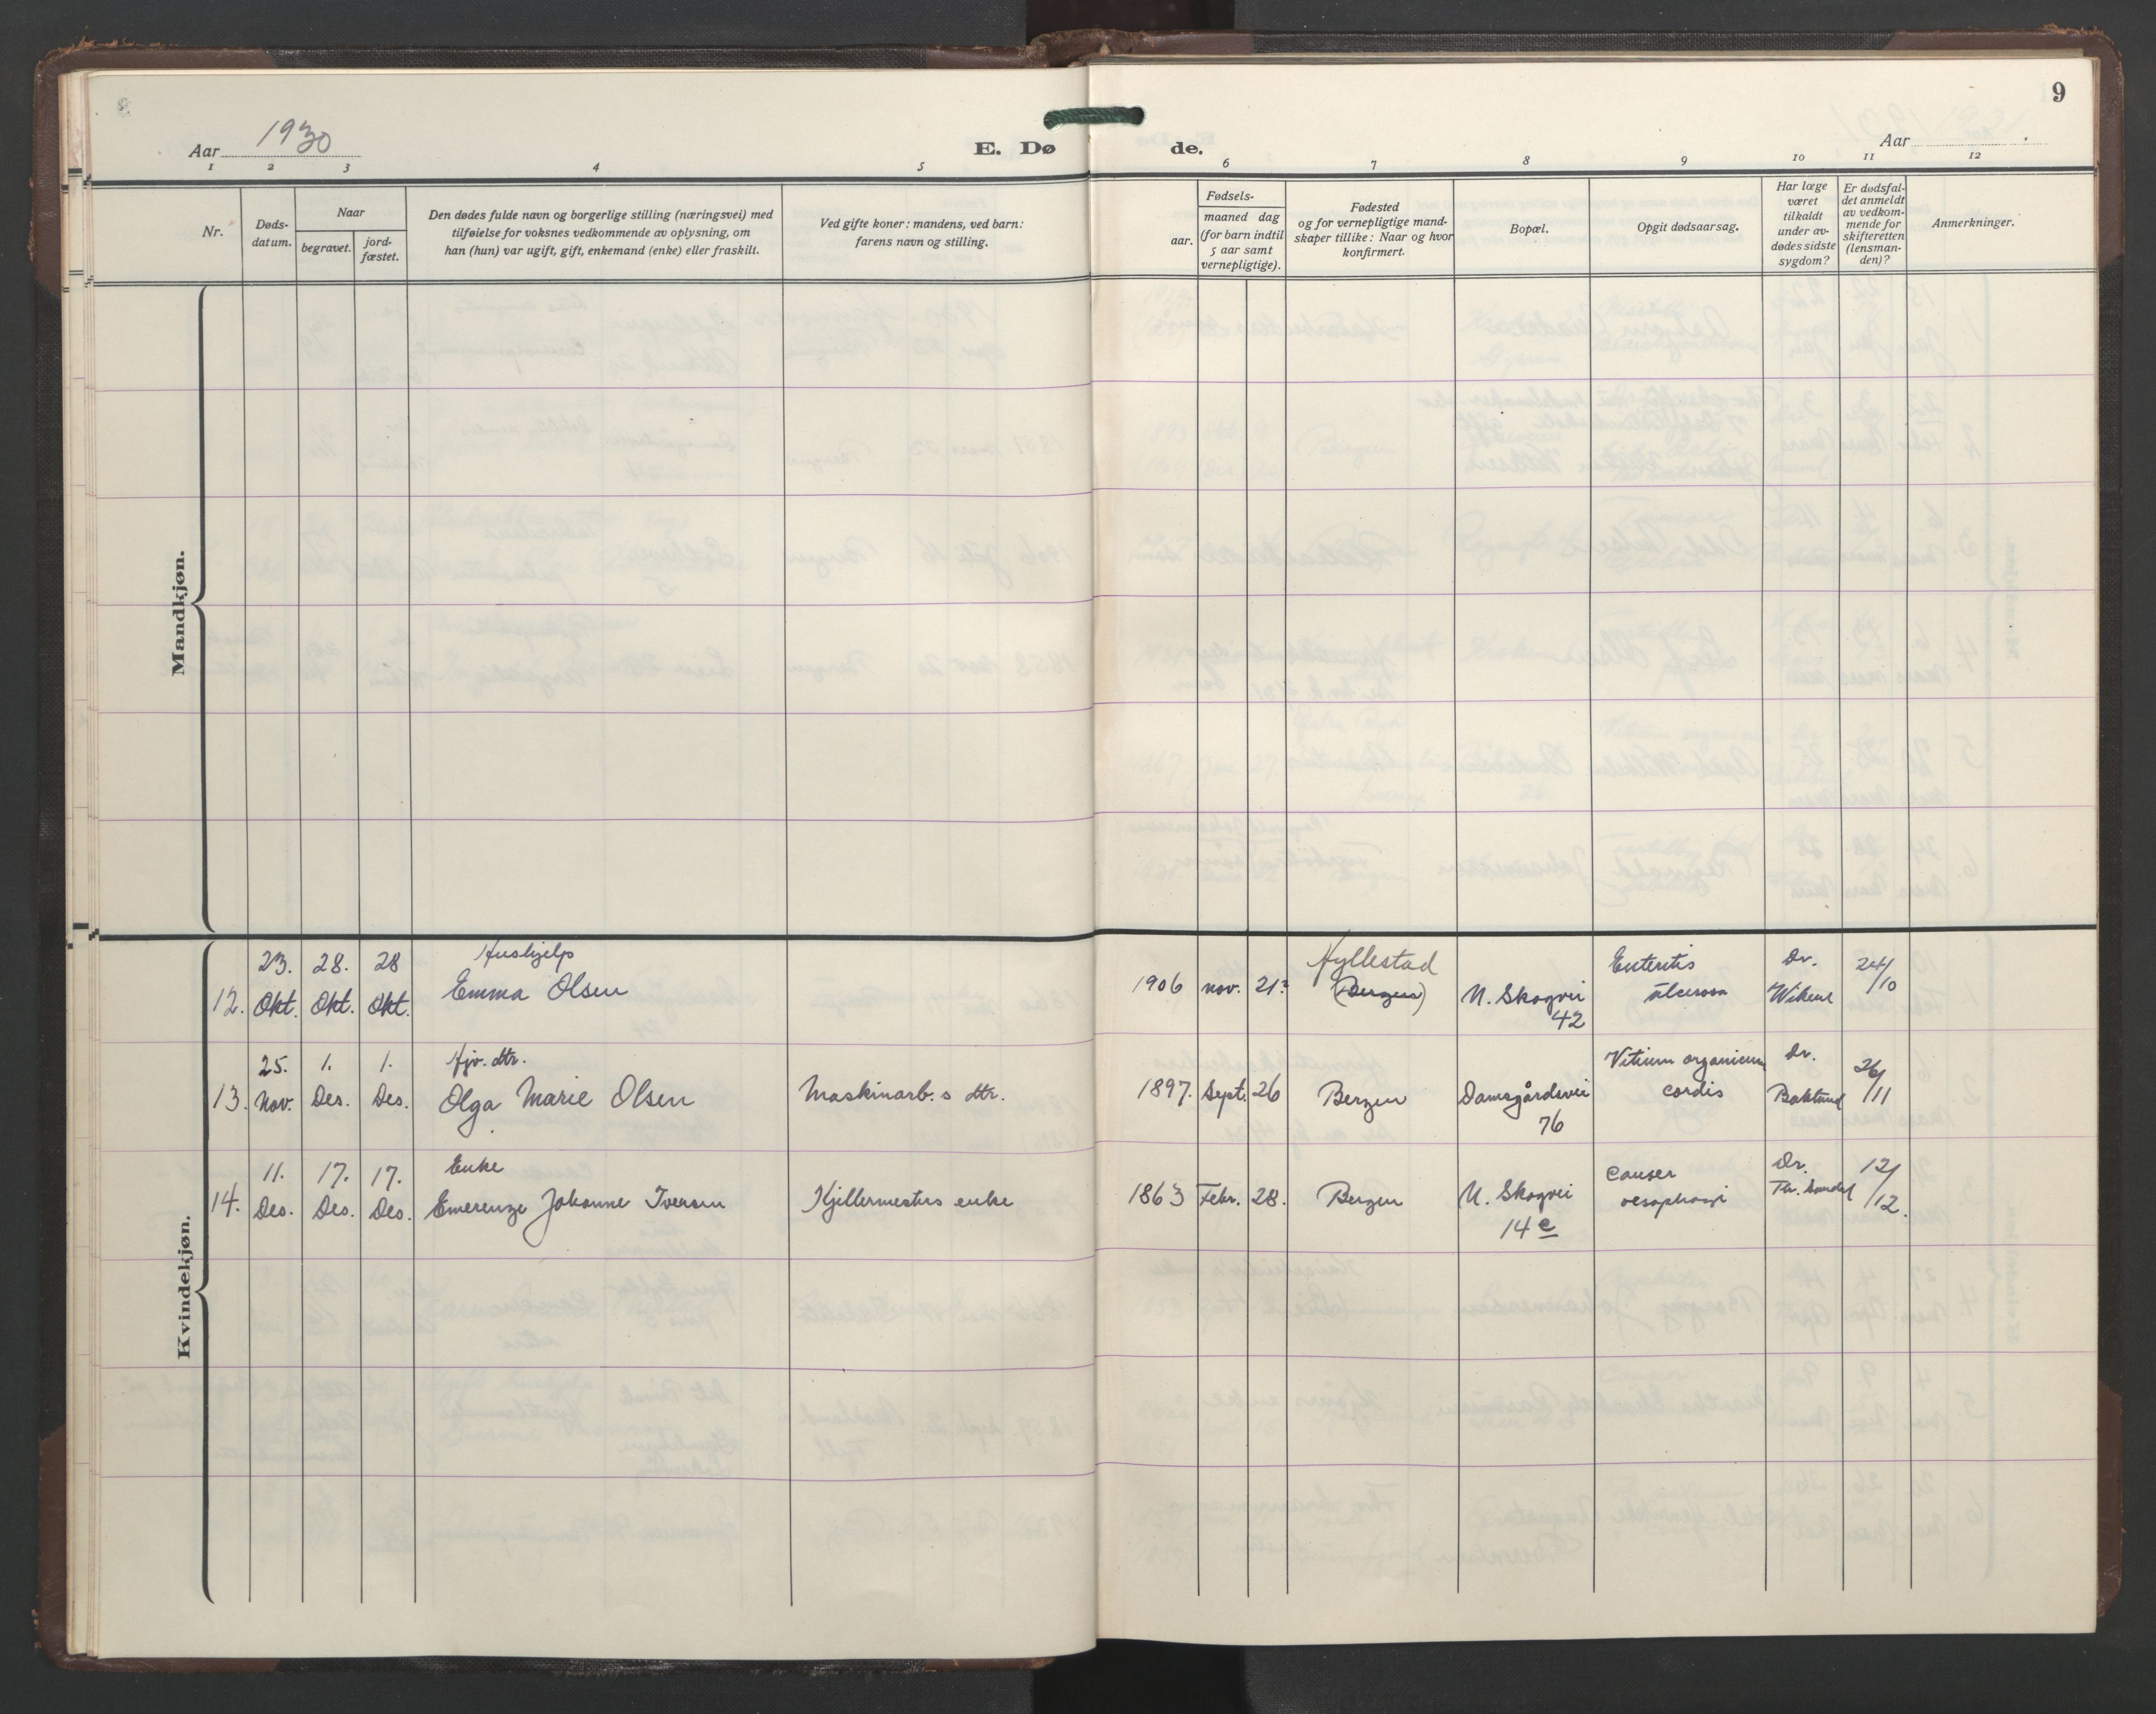 9
Aar 1930
E. Døde.
Aar
1 2 3 4 5 6 7 8 9 10 11 12
Nr.
Døds-
datum.
Naar
begravet.
jord-
fæstet.
Den dødes fulde navn og borgerlige stilling (næringsvei) med
tilføielse for voksnes vedkommende av oplysning, om
han (hun) var ugift, gift, enkemand (enke) eller fraskilt.
Ved gifte koner: mandens, ved barn:
farens navn og stilling.
Fødsels-
aar.
maaned dag
(for barn indtil
5 aar samt
vernepligtige).
Fødested
og for vernepligtige mand-
skaper tillike: Naar og hvor
konfirmert.
Bopæl.
Opgit dødsaarsag.
Har læge
været
tilkaldt
under av-
dødes sidste
sygdom?
Er dødsfal-
det anmeldt
av vedkom-
mende for
skifteretten
(lensman-
den)?
Anmerkninger.
Mandkjøn.
Kvindekjøn.
23. 28. 28 Hushjelp Hyllestad Enteritis Dr. 24/10
12. Okt. Okt. Okt. Emma Olsen 1906 nov. 21 (Bergen) N. Skogvei ulcerosa
42
25. 1. 1. Hjv. dtr. Vitium organicum Dr. 26/11
13. Nov. Des. Des. Olga Marie Olsen Maskinarb.s dtr. 1897. Sept. 26 Bergen Damsgårdsvei cordis
76
11. 17. 17. Enke Cancer Dr. 12/12.
14. Des. Des. Des. Emerenze Johanne Iversen Kjellermesters enke 1863 Febr. 28. Bergen N. Skogvei oesophagi
14 c